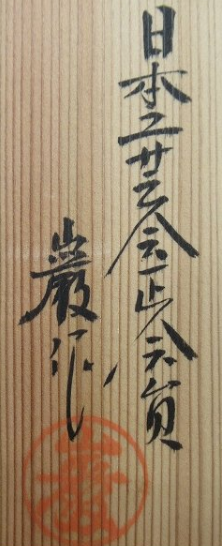 日本工芸会正会員
巌作
巌